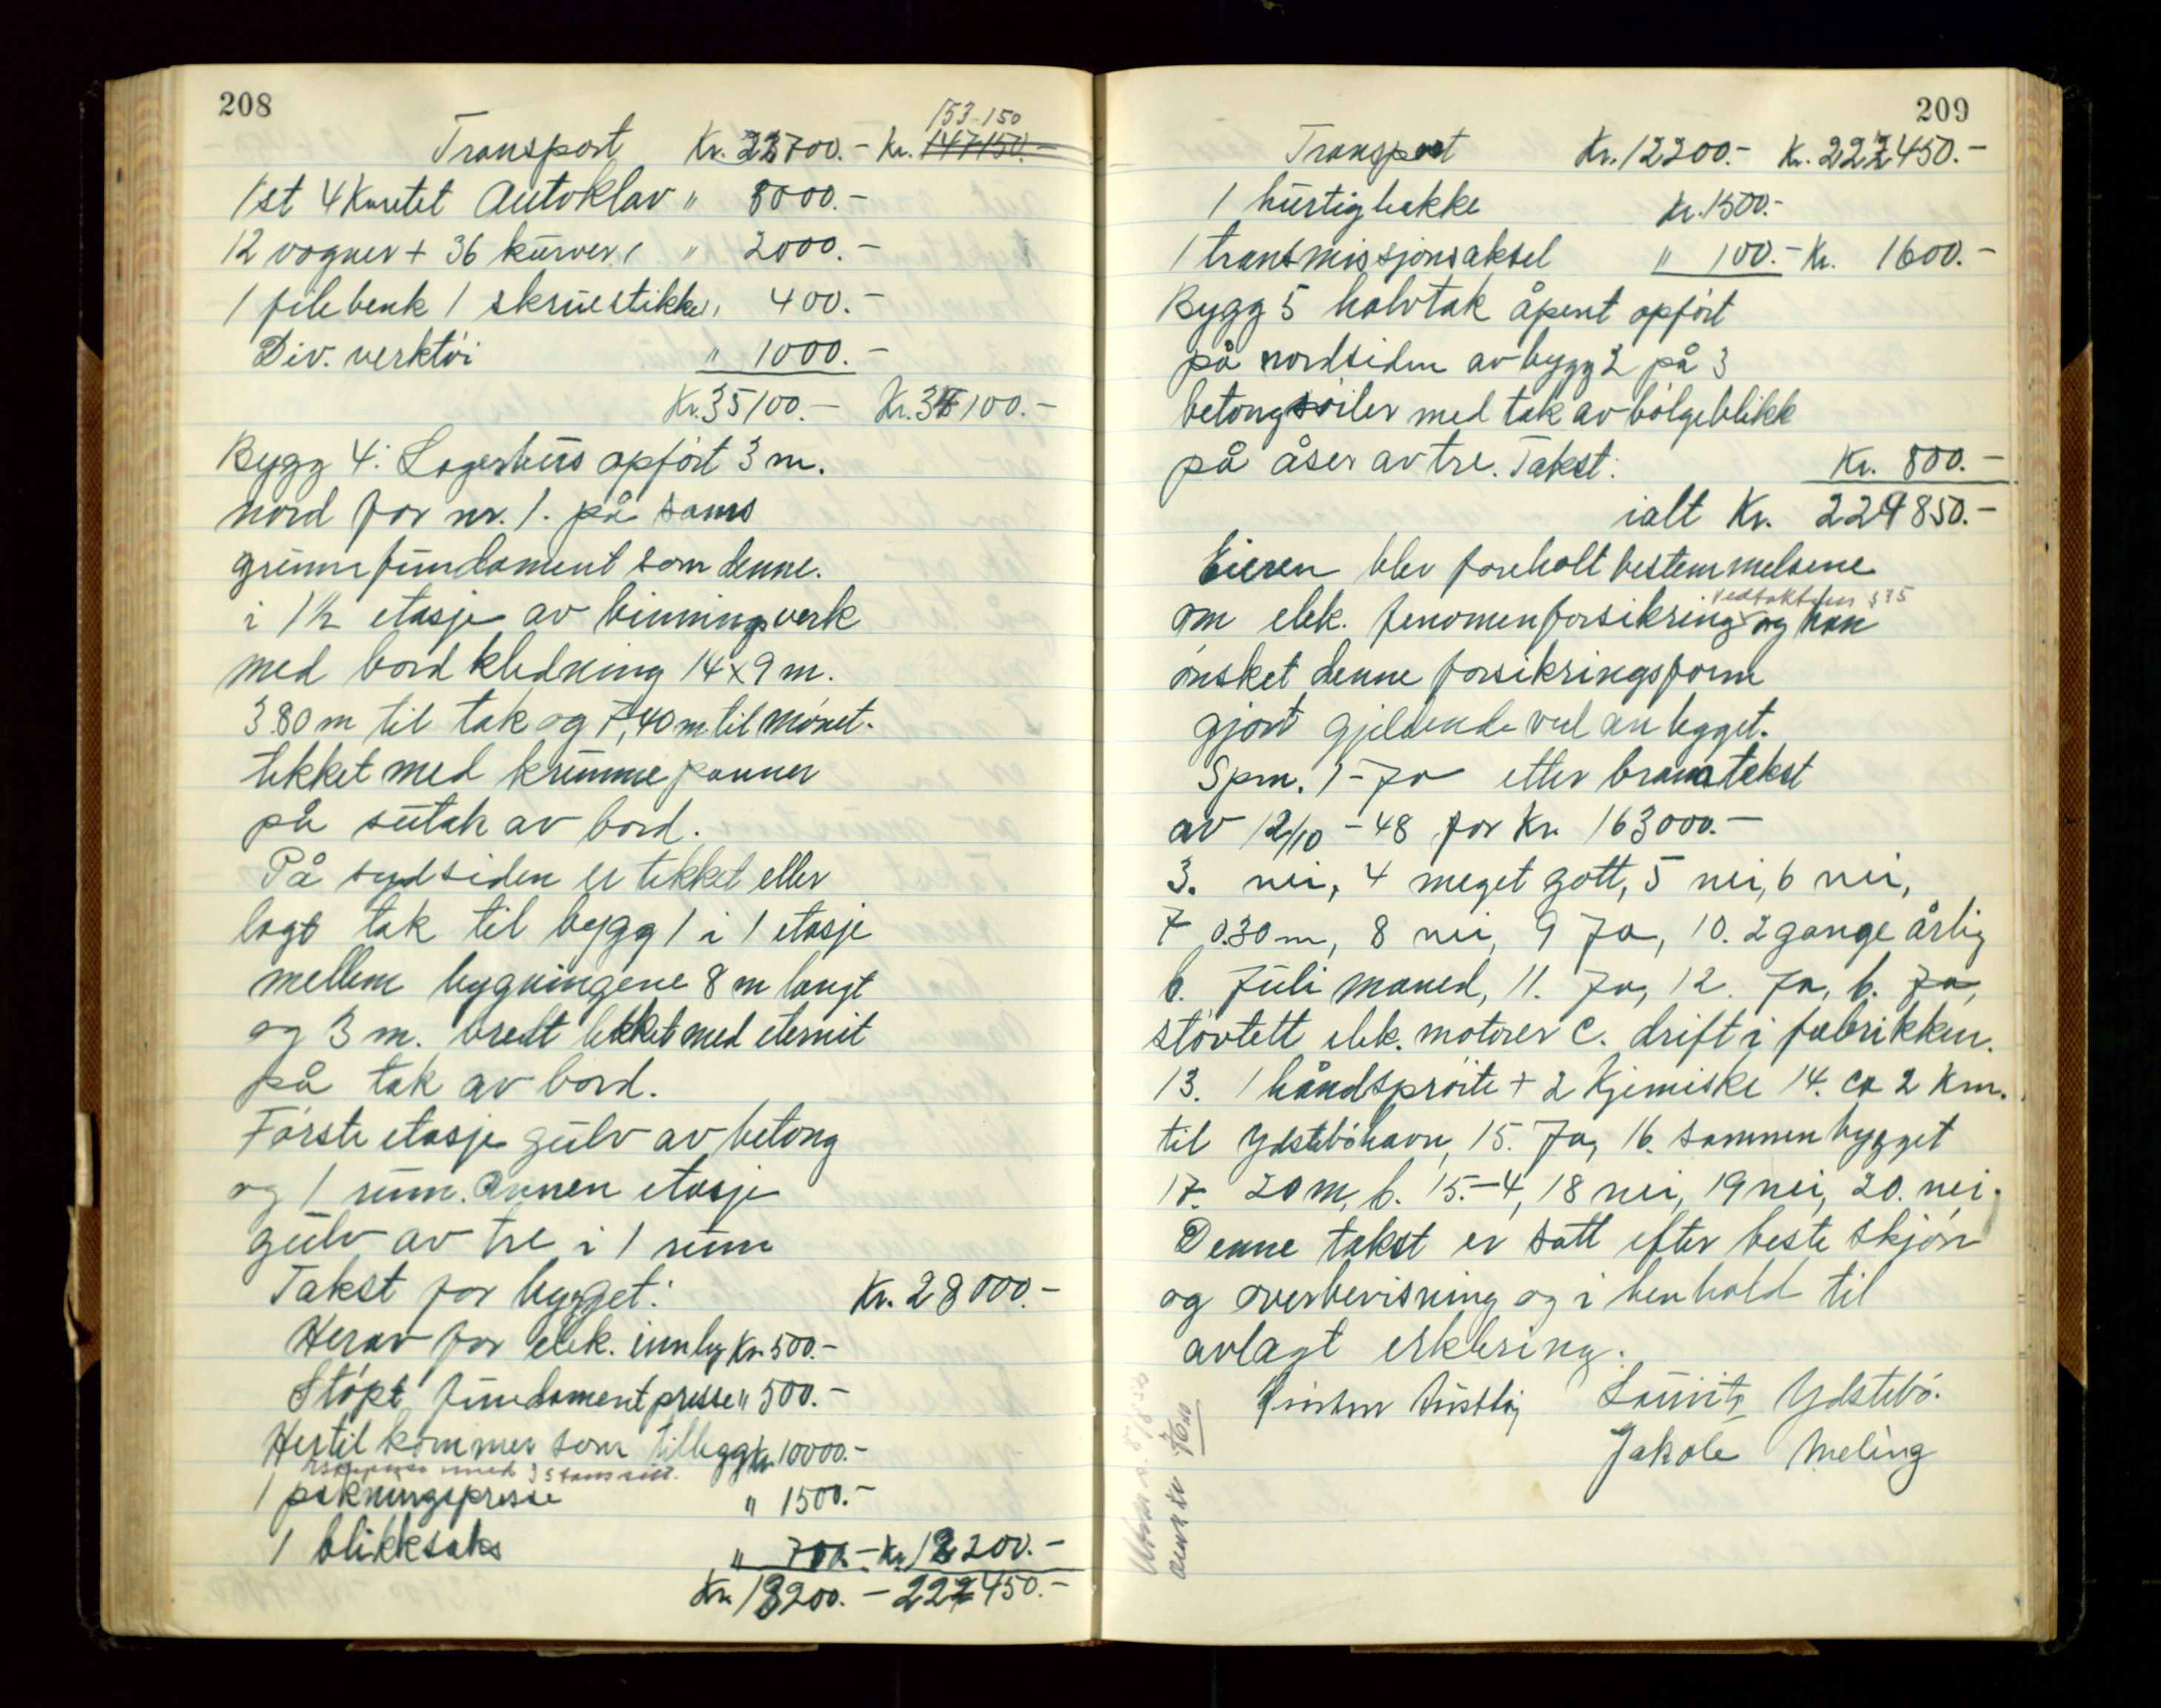 208
153-150
Transport Kr. 23700.- Kr. 147150.-
1 st 4 Kurvtet Autoklav " 8000.-
12 vogner + 36 kurver, " 2000.-
1 filebenk 1 skruestikke " 400.-
Div. verktöi " 1000.-
Kr. 35100.- Kr. 35100.-
Bygg 4: Lagerhus opfört 3 m.
nord for nr. 1. på sams
grunnfundament som denne.
i 1½ etasje av binningsverk
med bordkledning 14 x 9 m.
3.80 m til tak og 7,40 m til mönet.
tekket med krumme panner
på sutak av bord.
På sydsiden er tekket eller
lagt tak til bygg 1 i 1 etasje
mellem bygningene 8 m langt
og 3 m. bredt tekket med eternit
på tak av bord.
Förste etasje gulv av betong
og 1 rum. Annen etasje
gulv av tre i 1 rum
Takst for bygget: Kr. 28000.-
Herav for elek. innleg Kr. 500.-
Stöpt fundament presse " 500.-
Hertil kommer som tillegg Kr. 10000.-
med 3
1 pakningspresse " 1500.-
1 blikksaks " 700.- Kr. 12200.-
Kr. 12200.- 222450.-
209
Transport Kr. 12200.- Kr. 222450.-
1 hurtighakke Kr. 1500.-
1 transmissjonsaksel " 100.- Kr. 1600.-
Bygg 5 halvtak åpent opfört
på nordsiden av bygg 2 på 3
betongsöiler med tak av bölgeblikk
på åser av tre. Takst: Kr. 800.-
ialt Kr. 224850.-
Eieren blev foreholt bestemmelsene
vedtektene § 35
om elek. fenomenforsikring og han
önsket denne forsikringsform
gjort gjeldende ved anlegget.
Spm. 1 - Ja etter branntakst
av 12/10 - 48 for Kr. 163000.-
3. nei, 4 meget gott, 5 nei, 6 nei,
7 0.30 m, 8 nei, 9 Ja, 10. 2 gange årlig
b. Juli maned, 11. Ja, 12. Ja, b. Ja,
stövtett elek. motorer c. drift i fabrikken.
13. 1 håndspröite + 2 Kjemiske 14. ca 2 Km.
til Ydsteböhavn, 15. Ja, 16. sammenbygget
17. 20 m, b. 15.-4, 18 nei, 19 nei, 20. nei.
Denne takst er satt efter beste skjön
og overbevisning og i henhold til
avlagt erklering.
Lauritz Ydstebö.
Jakob Meling